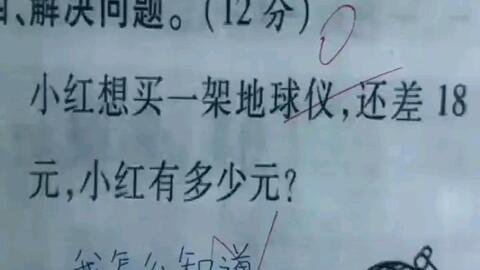 四、解决问题。(12分)
小红想买一架地球仪,还差18
元,小红有多少元?
我怎么知道